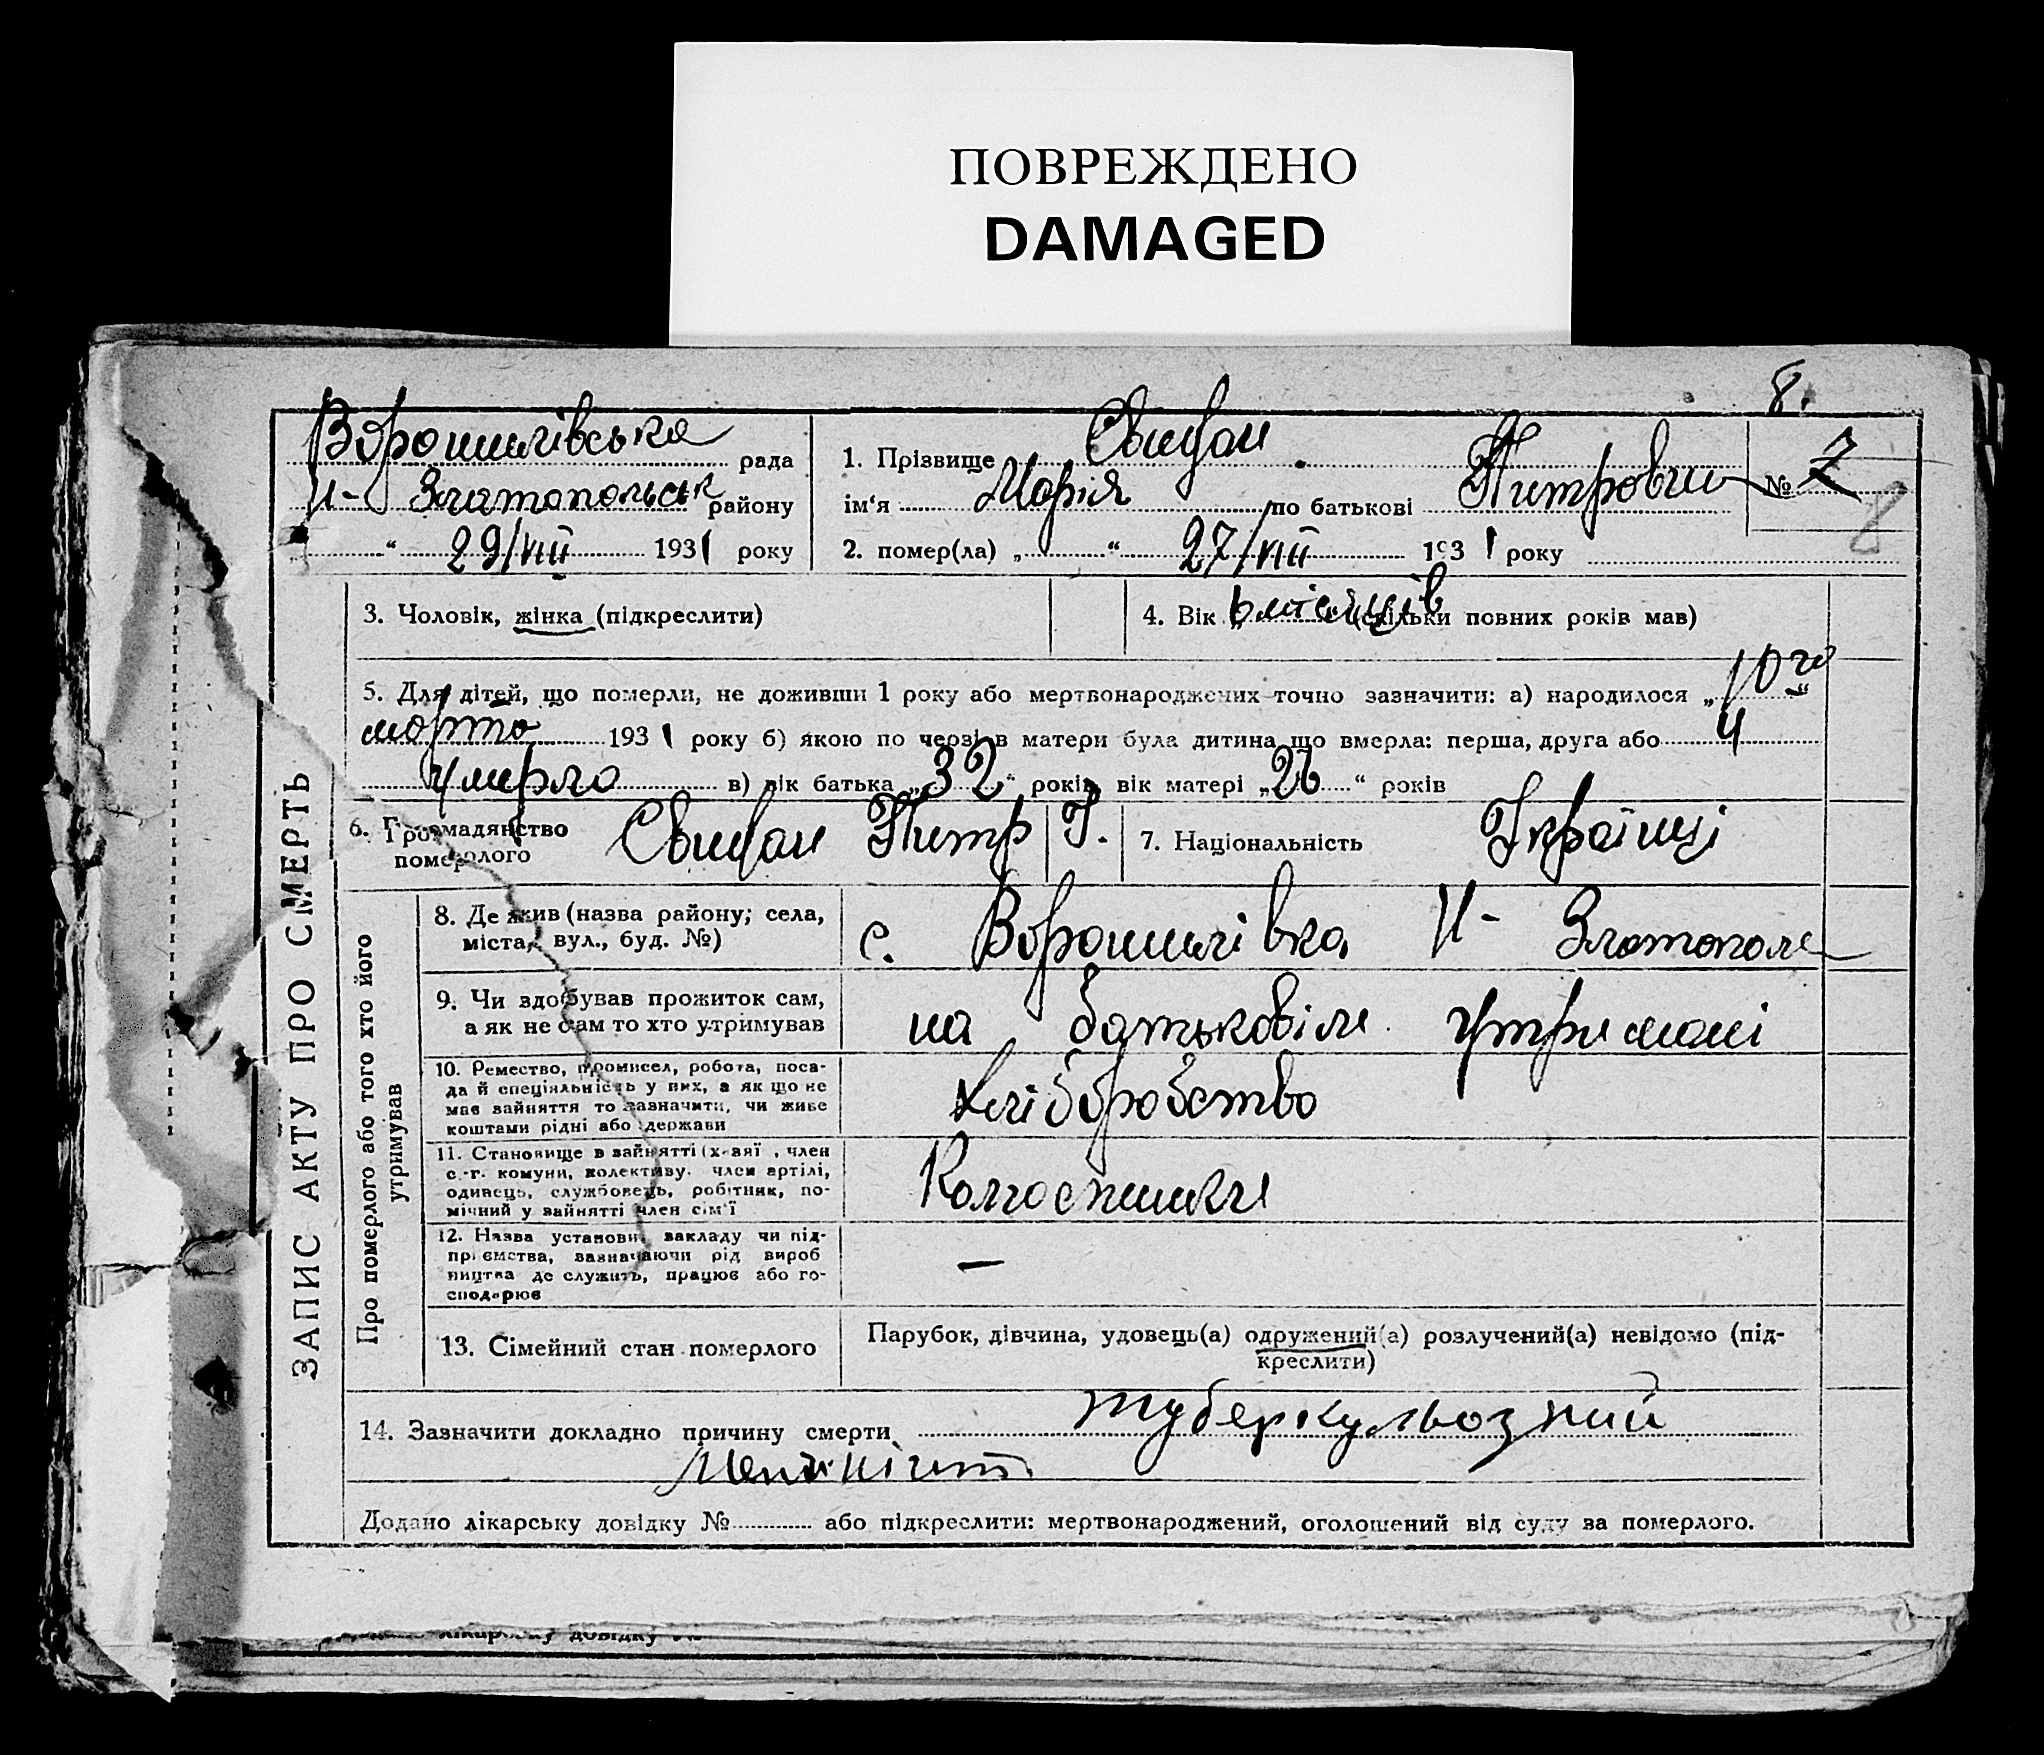 ПОВРЕЖДЕНО
DAMAGED
8.
Ворошилівська рада
Н- Златопольськ району
“ 29/VIII 1931 року
1. Прізвище Свидан
ім‘я Марія по батькові Питровна
№ 7
8
2. помер(ла) „ “ 27/VIII 1931 року
3. Чоловік, жінка (підкреслити)
4. Вік „ місяців (скільки повних років мав)
5. Для дітей, що померли, не доживши 1 року або мертвонароджених точно зазначити: а) народилося „10го“
марта 1931 року б) якою по черзі в матери була дитина що вмерла: перша, друга або 4
умерло в) вік батька „32“ років, вік матері „26“ років
6. Громадянство померлого Свидан Питр Г.
7. Національність Українці
ЗАПИС АКТУ ПРО СМЕРТЬ
Про померлого або того хто його
утримував
8. Де жив (назва району; села,
міста, вул., буд. №)
с. Ворошилівка Н- Златополе
9. Чи здобував прожиток сам,
а як не сам то хто утримував
на батьковім утримані
10. Ремество, промисел, робота, поса-
да й спеціяльність у них, а як що не
має зайняття то зазначити, чи живе
коштами рідні або держави
хліборобство
11. Становище в зайнятті (хазяї , член
с.-г. комуни, колективу. член артілі,
одинець, службовець, робітник, по-
мічний у зайнятті член сім‘ї
Колгоспники
12. Назва установи, закладу чи під-
приємства, зазначаючи рід вироб
ництва де служить, працює або го-
сподарює
—
13. Сімейний стан померлого
Парубок, дівчина, удовець(а) одружений(а) розлучений(а) невідомо (під-
креслити)
14. Зазначити докладно причину смерти туберкульозний
Менінгит
Додано лікарську довідку № або підкреслити: мертвонароджений, оголошений від суду за померлого.
лікарську довідку №